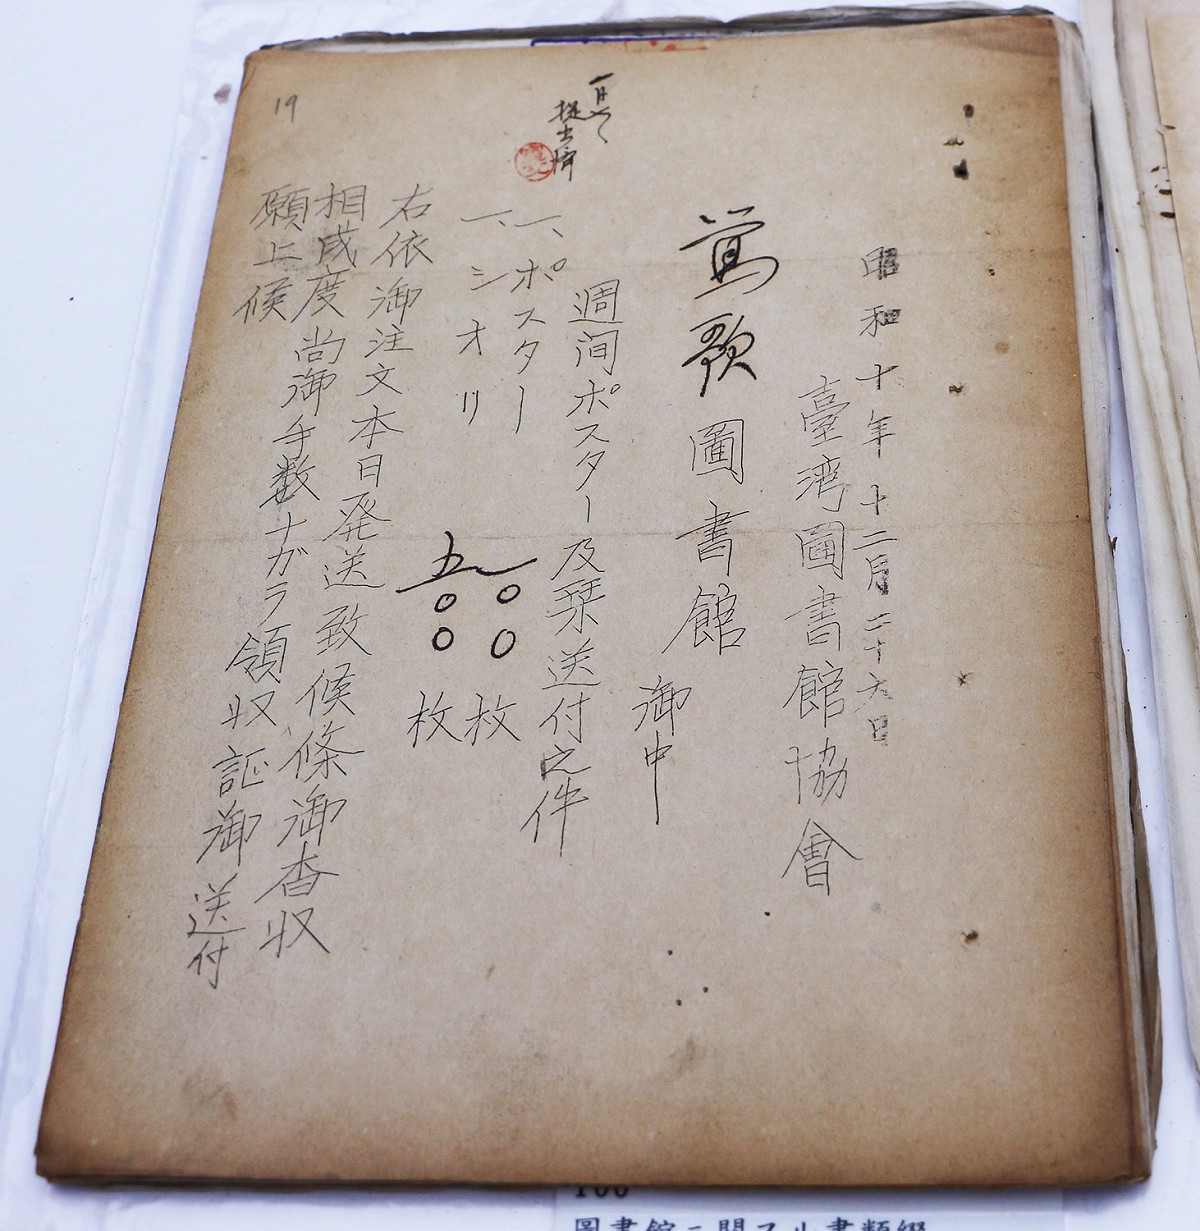 昭和十年十二月二十六日
臺湾圖書館協會
鶯歌圖書館
御中
週间ポスター及栞送付之件
一、ポスター 一〇〇枚
一、シオリ 五〇〇枚
右依御注文本日発送致候條御査収
相成度尚御手数ナガラ領収証御送付
願上候
提出済
19
100
圖書館ニ関スル書類綴